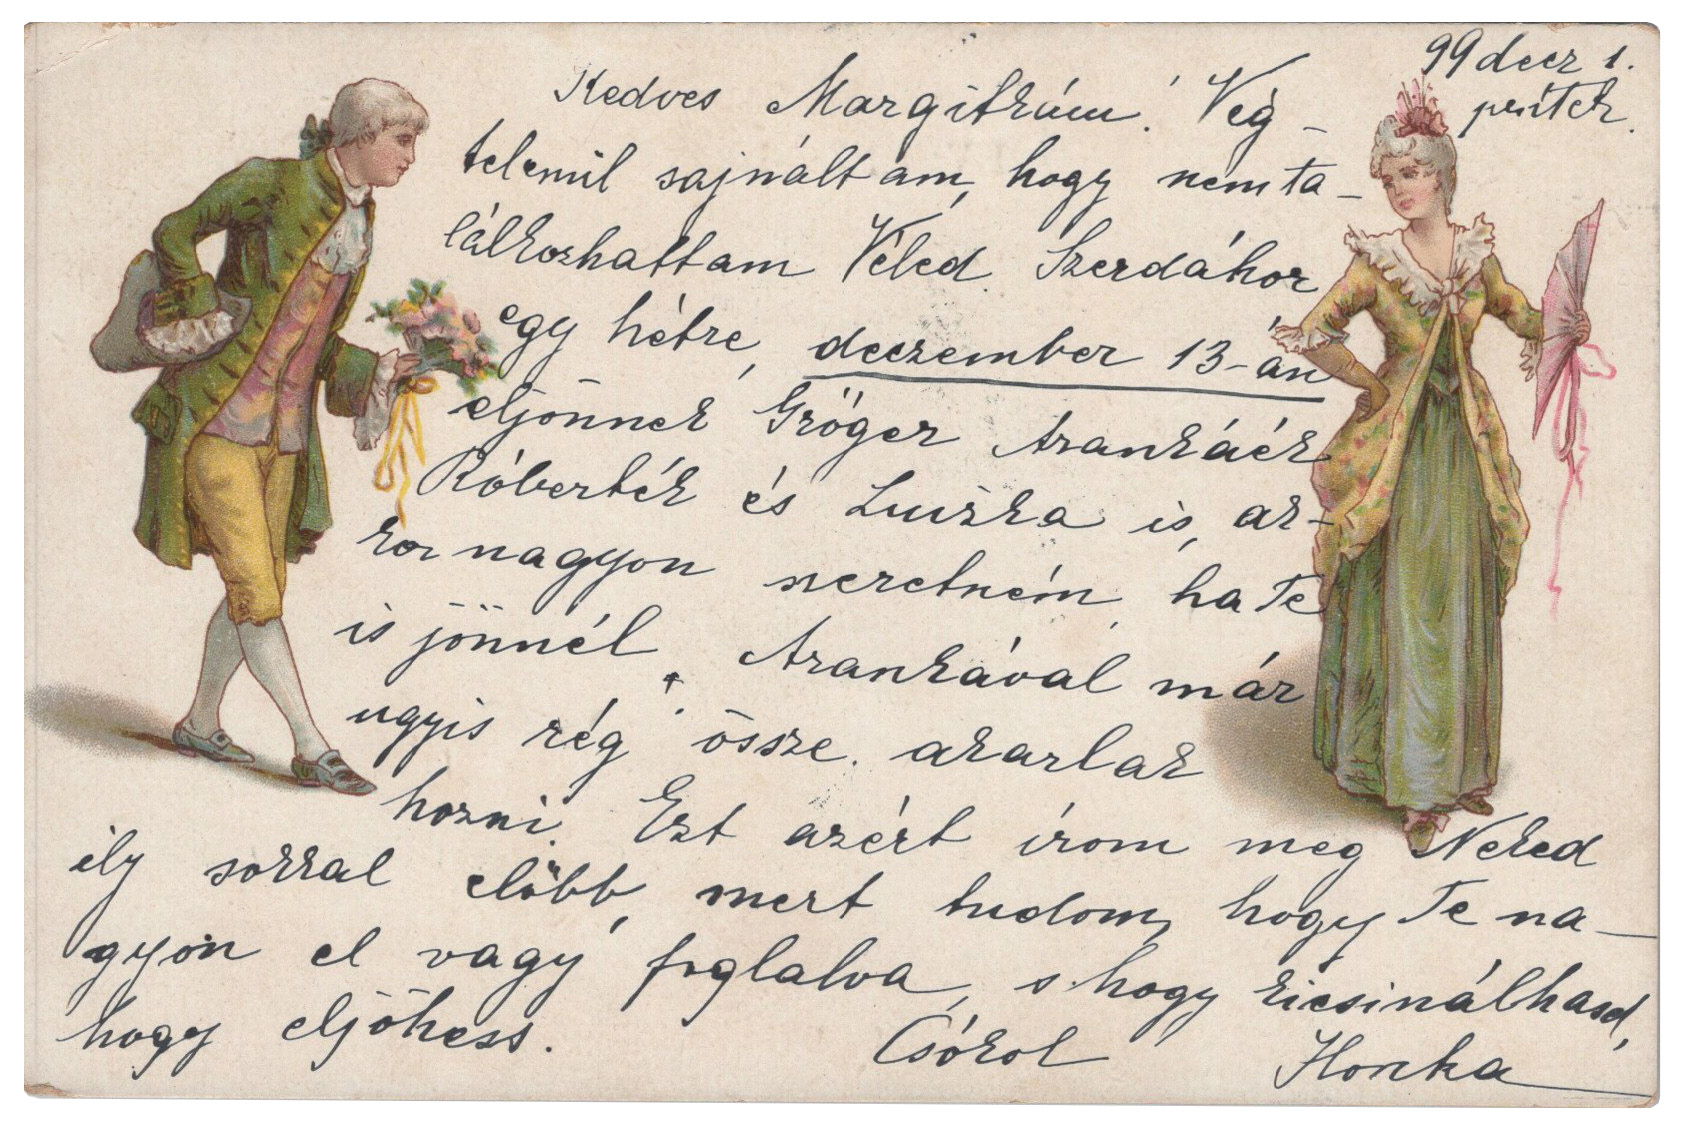 99 decz 1.
péntek.
Kedves Margitkám! Vég-
telenül sajnáltam, hogy nem ta-
lálkozhattam Véled. Szerdához
egy hétre, deczember 13-án
eljönnek Gröger Arankáék
Róberték és Luiszka is, ak-
kor nagyon szeretném, ha Te
is jönnél. Arankával már
ugyis rég össze akarlak
hozni. Ezt azért írom meg Neked
ily sokkal előbb, mert tudom, hogy Te na-
gyon el vagy foglalva, s hogy kicsinálhasd,
hogy eljöhess.
Csókol Ilonka